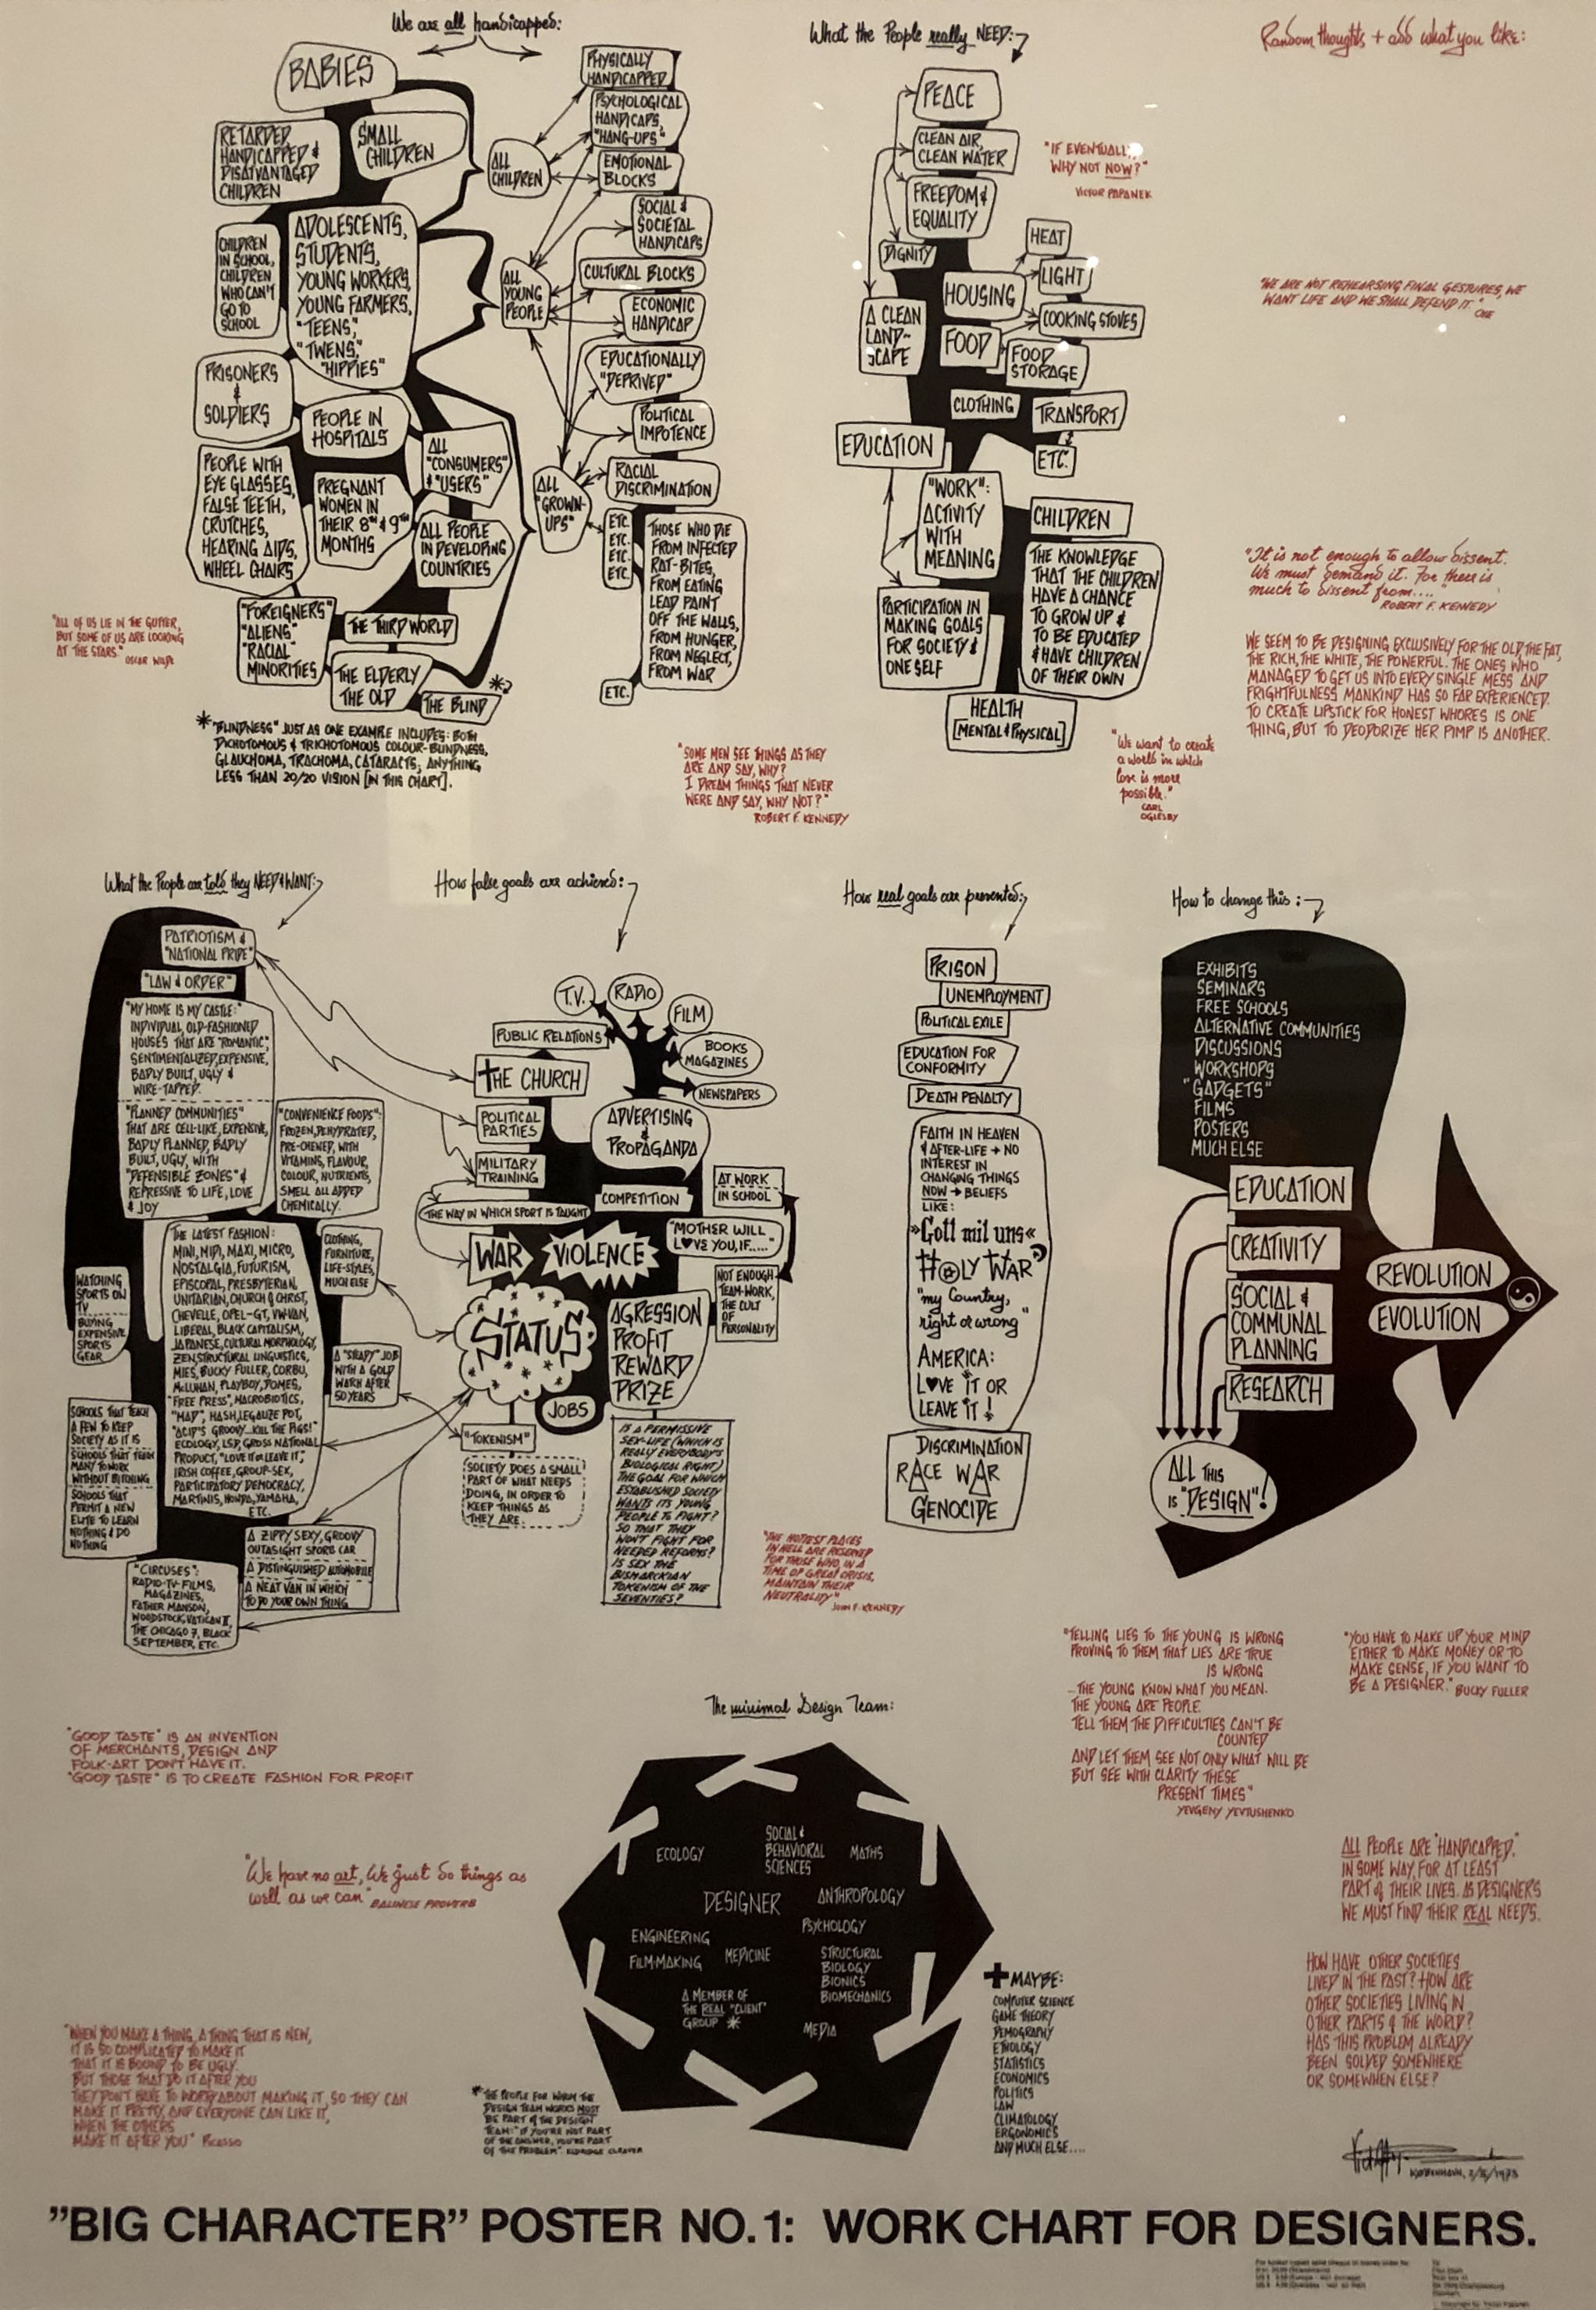 We are all handicapped:
BABIES
RETARDED,
HANDICAPPED &
DISATVANTAGED
CHILDREN
SMALL
CHILDREN
CHILDREN
IN SCHOOL,
CHILDREN
WHO CAN'T
GO TO
SCHOOL
ADOLESCENTS,
STUDENTS,
YOUNG WORKERS,
YOUNG FARMERS,
"TEENS,"
"TWENS,"
"HIPPIES"
PRISONERS
&
SOLDIERS
PEOPLE IN
HOSPITALS
PEOPLE WITH
EYE GLASSES,
FALSE TEETH,
CRUTCHES,
HEARING AIDS,
WHEEL CHAIRS
PREGNANT
WOMEN IN
THEIR 8TH & 9TH
MONTHS
ALL
"CONSUMERS"
& "USERS"
ALL PEOPLE
IN DEVELOPING
COUNTRIES
"FOREIGNERS"
"ALIENS"
"RACIAL"
MINORITIES
THE THIRD WORLD
THE ELDERLY
THE OLD
THE BLIND
*
ALL
CHILDREN
ALL
YOUNG
PEOPLE
ALL
"GROWN-
UPS"
PHYSICALLY
HANDICAPPED
PSYCHOLOGICAL
HANDICAPS,
"HANG-UPS"
EMOTIONAL
BLOCKS
SOCIAL &
SOCIETAL
HANDICAPS
CULTURAL BLOCKS
ECONOMIC
HANDICAP
EDUCATIONALLY
"DEPRIVED"
POLITICAL
IMPOTENCE
RACIAL
DISCRIMINATION
ETC.
ETC.
ETC.
ETC.
THOSE WHO DIE
FROM INFECTED
RAT-BITES,
FROM EATING
LEAD PAINT
OFF THE WALLS,
FROM HUNGER,
FROM NEGLECT,
FROM WAR
ETC.
* "BLINDNESS" JUST AS ONE EXAMPLE INCLUDES: BOTH
DICHOTOMOUS & TRICHOTOMOUS COLOUR-BLINDNESS,
GLAUCHOMA, TRACHOMA, CATARACTS; ANYTHING
LESS THAN 20/20 VISION [IN THIS CHART].
"ALL OF US LIE IN THE GUTTER,
BUT SOME OF US ARE LOOKING
AT THE STARS." OSCAR WILDE
"SOME MEN SEE THINGS AS THEY
ARE AND SAY, WHY?
I DREAM THINGS THAT NEVER
WERE AND SAY, WHY NOT?"
ROBERT F. KENNEDY
What the People really NEED:
PEACE
CLEAN AIR,
CLEAN WATER
FREEDOM &
EQUALITY
DIGNITY
HEAT
LIGHT
HOUSING
COOKING STOVES
A CLEAN
LAND-
SCAPE
FOOD
FOOD
STORAGE
CLOTHING
TRANSPORT
ETC.
EDUCATION
"WORK":
ACTIVITY
WITH
MEANING
CHILDREN
THE KNOWLEDGE
THAT THE CHILDREN
HAVE A CHANCE
TO GROW UP &
TO BE EDUCATED
& HAVE CHILDREN
OF THEIR OWN
PARTICIPATION IN
MAKING GOALS
FOR SOCIETY &
ONE SELF
HEALTH
[MENTAL & PHYSICAL]
"IF EVENTUALLY,
WHY NOT NOW?"
VICTOR PAPANEK
"We want to create
a world in which
love is more
possible."
CARL
OGLESBY
Random thoughts + add what you like:
"WE ARE NOT REHEARSING FINAL GESTURES, WE
WANT LIFE AND WE SHALL DEFEND IT."
"It is not enough to allow dissent.
We must demand it. For there is
much to dissent from...."
ROBERT F. KENNEDY
WE SEEM TO BE DESIGNING EXCLUSIVELY FOR THE OLD, THE FAT,
THE RICH, THE WHITE, THE POWERFUL. THE ONES WHO
MANAGED TO GET US INTO EVERY SINGLE MESS AND
FRIGHTFULNESS MANKIND HAS SO FAR EXPERIENCED.
TO CREATE LIPSTICK FOR HONEST WHORES IS ONE
THING, BUT TO DEODORIZE HER PIMP IS ANOTHER.
What the People are told they NEED & WANT:
PATRIOTISM &
"NATIONAL PRIDE"
"LAW & ORDER"
"MY HOME IS MY CASTLE:"
INDIVIDUAL, OLD-FASHIONED
HOUSES THAT ARE "ROMANTIC",
SENTIMENTALIZED, EXPENSIVE,
BADLY BUILT, UGLY &
WIRE-TAPPED.
"PLANNED COMMUNITIES"
THAT ARE CELL-LIKE, EXPENSIVE,
BADLY PLANNED, BADLY
BUILT, UGLY, WITH
"DEFENSIBLE ZONES" &
REPRESSIVE TO LIFE, LOVE
& JOY
"CONVENIENCE FOODS":
FROZEN, DEHYDRATED,
PRE-CHEWED, WITH
VITAMINS, FLAVOUR,
COLOUR, NUTRIENTS,
SMELL ALL ADDED
CHEMICALLY.
THE LATEST FASHION:
MINI, MIDI, MAXI, MICRO,
NOSTALGIA, FUTURISM,
EPISCOPAL, PRESBYTERIAN,
UNITARIAN, CHURCH OF CHRIST,
CHEVELLE, OPEL-GT, VW-VAN,
LIBERAL, BLACK CAPITALISM,
JAPANESE, CULTURAL MORPHOLOGY,
ZEN, STRUCTURAL LINGUISTICS,
MIES, BUCKY FULLER, CORBU,
McLUHAN, PLAYBOY, DOMES,
"FREE PRESS", MACROBIOTICS,
"MAD", HASH, LEGALIZE POT,
"ACID'S GROOVY...KILL THE PIGS!"
ECOLOGY, LSD, GROSS NATIONAL
PRODUCT, "LOVE IT OR LEAVE IT",
IRISH COFFEE, GROUP-SEX,
PARTICIPATORY DEMOCRACY,
MARTINIS, HONDA, YAMAHA,
ETC.
CLOTHING,
FURNITURE,
LIFE-STYLES,
MUCH ELSE
WATCHING
SPORTS ON
TV
BUYING
EXPENSIVE
SPORTS
GEAR
A "STEADY" JOB
WITH A GOLD
WATCH AFTER
50 YEARS
SCHOOLS THAT TEACH
A FEW TO KEEP
SOCIETY AS IT IS
SCHOOLS THAT TEACH
MANY TO WORK
WITHOUT BITCHING
SCHOOLS THAT
PERMIT A NEW
ELITE TO LEARN
NOTHING & DO
NOTHING
A ZIPPY, SEXY, GROOVY
OUTASIGHT SPORTS CAR
A DISTINGUISHED AUTOMOBILE
A NEAT VAN IN WHICH
TO DO YOUR OWN THING
"CIRCUSES":
RADIO-TV-FILMS,
MAGAZINES,
FATHER MANSON,
WOODSTOCK, VATICAN II,
THE CHICAGO 7, BLACK
SEPTEMBER, ETC.
How false goals are achieved:
T.V.
RADIO
FILM
BOOKS
MAGAZINES
NEWSPAPERS
PUBLIC RELATIONS
THE CHURCH
POLITICAL
PARTIES
MILITARY
TRAINING
ADVERTISING
&
PROPAGANDA
THE WAY IN WHICH SPORT IS TAUGHT
COMPETITION
AT WORK
IN SCHOOL
WAR
VIOLENCE
"MOTHER WILL
L♥VE YOU, IF....."
NOT ENOUGH
TEAM-WORK,
THE CULT
OF
PERSONALITY
STATUS
AGRESSION
PROFIT
REWARD
PRIZE
JOBS
"TOKENISM"
SOCIETY DOES A SMALL
PART OF WHAT NEEDS
DOING, IN ORDER TO
KEEP THINGS AS
THEY ARE.
IS A PERMISSIVE
SEX-LIFE (WHICH IS
REALLY EVERYBODY'S
BIOLOGICAL RIGHT)
THE GOAL FOR WHICH
ESTABLISHED SOCIETY
WANTS ITS YOUNG
PEOPLE TO FIGHT?
SO THAT THEY
WON'T FIGHT FOR
NEEDED REFORMS?
IS SEX THE
BISMARCKIAN
TOKENISM OF THE
SEVENTIES?
How real goals are presented:
PRISON
UNEMPLOYMENT
POLITICAL EXILE
EDUCATION FOR
CONFORMITY
DEATH PENALTY
FAITH IN HEAVEN
& AFTER-LIFE → NO
INTEREST IN
CHANGING THINGS
NOW → BELIEFS
LIKE:
»Gott mit uns«
HOLY WAR
"my Country,
right or wrong"
AMERICA:
L♥VE IT OR
LEAVE IT!
DISCRIMINATION
RACE WAR
GENOCIDE
"THE HOTTEST PLACES
IN HELL ARE RESERVED
FOR THOSE WHO, IN A
TIME OF GREAT CRISIS,
MAINTAIN THEIR
NEUTRALITY"
JOHN F. KENNEDY
How to change this:
EXHIBITS
SEMINARS
FREE SCHOOLS
ALTERNATIVE COMMUNITIES
DISCUSSIONS
WORKSHOPS
"GADGETS"
FILMS
POSTERS
MUCH ELSE
EDUCATION
CREATIVITY
SOCIAL &
COMMUNAL
PLANNING
RESEARCH
REVOLUTION
EVOLUTION
ALL THIS
IS "DESIGN"!
"TELLING LIES TO THE YOUNG IS WRONG
PROVING TO THEM THAT LIES ARE TRUE
IS WRONG
...THE YOUNG KNOW WHAT YOU MEAN.
THE YOUNG ARE PEOPLE.
TELL THEM THE DIFFICULTIES CAN'T BE
COUNTED
AND LET THEM SEE NOT ONLY WHAT WILL BE
BUT SEE WITH CLARITY THESE
PRESENT TIMES"
YEVGENY YEVTUSHENKO
"YOU HAVE TO MAKE UP YOUR MIND
EITHER TO MAKE MONEY OR TO
MAKE SENSE, IF YOU WANT TO
BE A DESIGNER." BUCKY FULLER
"GOOD TASTE" IS AN INVENTION
OF MERCHANTS, DESIGN AND
FOLK-ART DON'T HAVE IT.
"GOOD TASTE" IS TO CREATE FASHION FOR PROFIT
"We have no art, We just do things as
well as we can" BALINESE PROVERB
"WHEN YOU MAKE A THING, A THING THAT IS NEW,
IT IS SO COMPLICATED TO MAKE IT
THAT IT IS BOUND TO BE UGLY.
BUT THOSE THAT DO IT AFTER YOU
THEY DON'T HAVE TO WORRY ABOUT MAKING IT, SO THEY CAN
MAKE IT PRETTY, AND EVERYONE CAN LIKE IT,
WHEN THE OTHERS
MAKE IT AFTER YOU" Picasso
The minimal Design Team:
ECOLOGY
SOCIAL &
BEHAVIORAL
SCIENCES
MATHS
DESIGNER
ANTHROPOLOGY
PSYCHOLOGY
ENGINEERING
FILM-MAKING
MEDICINE
STRUCTURAL
BIOLOGY
BIONICS
BIOMECHANICS
A MEMBER OF
THE REAL "CLIENT"
GROUP *
MEDIA
* THE PEOPLE FOR WHOM THE
DESIGN TEAM WORKS MUST
BE PART OF THE DESIGN
TEAM: "IF YOU'RE NOT PART
OF THE ANSWER, YOU'RE PART
OF THE PROBLEM". ELDRIDGE CLEAVER
+ MAYBE:
COMPUTER SCIENCE
GAME THEORY
DEMOGRAPHY
ETHOLOGY
STATISTICS
ECONOMICS
POLITICS
LAW
CLIMATOLOGY
ERGONOMICS
AND MUCH ELSE....
ALL PEOPLE ARE "HANDICAPPED."
IN SOME WAY, FOR AT LEAST
PART of THEIR LIVES. AS DESIGNERS
WE MUST FIND THEIR REAL NEEDS.
HOW HAVE OTHER SOCIETIES
LIVED IN THE PAST? HOW ARE
OTHER SOCIETIES LIVING IN
OTHER PARTS of THE WORLD?
HAS THIS PROBLEM ALREADY
BEEN SOLVED SOMEWHERE
OR SOMEWHEN ELSE?
KØBENHAVN, 2/2/1973
"BIG CHARACTER" POSTER NO. 1: WORK CHART FOR DESIGNERS.